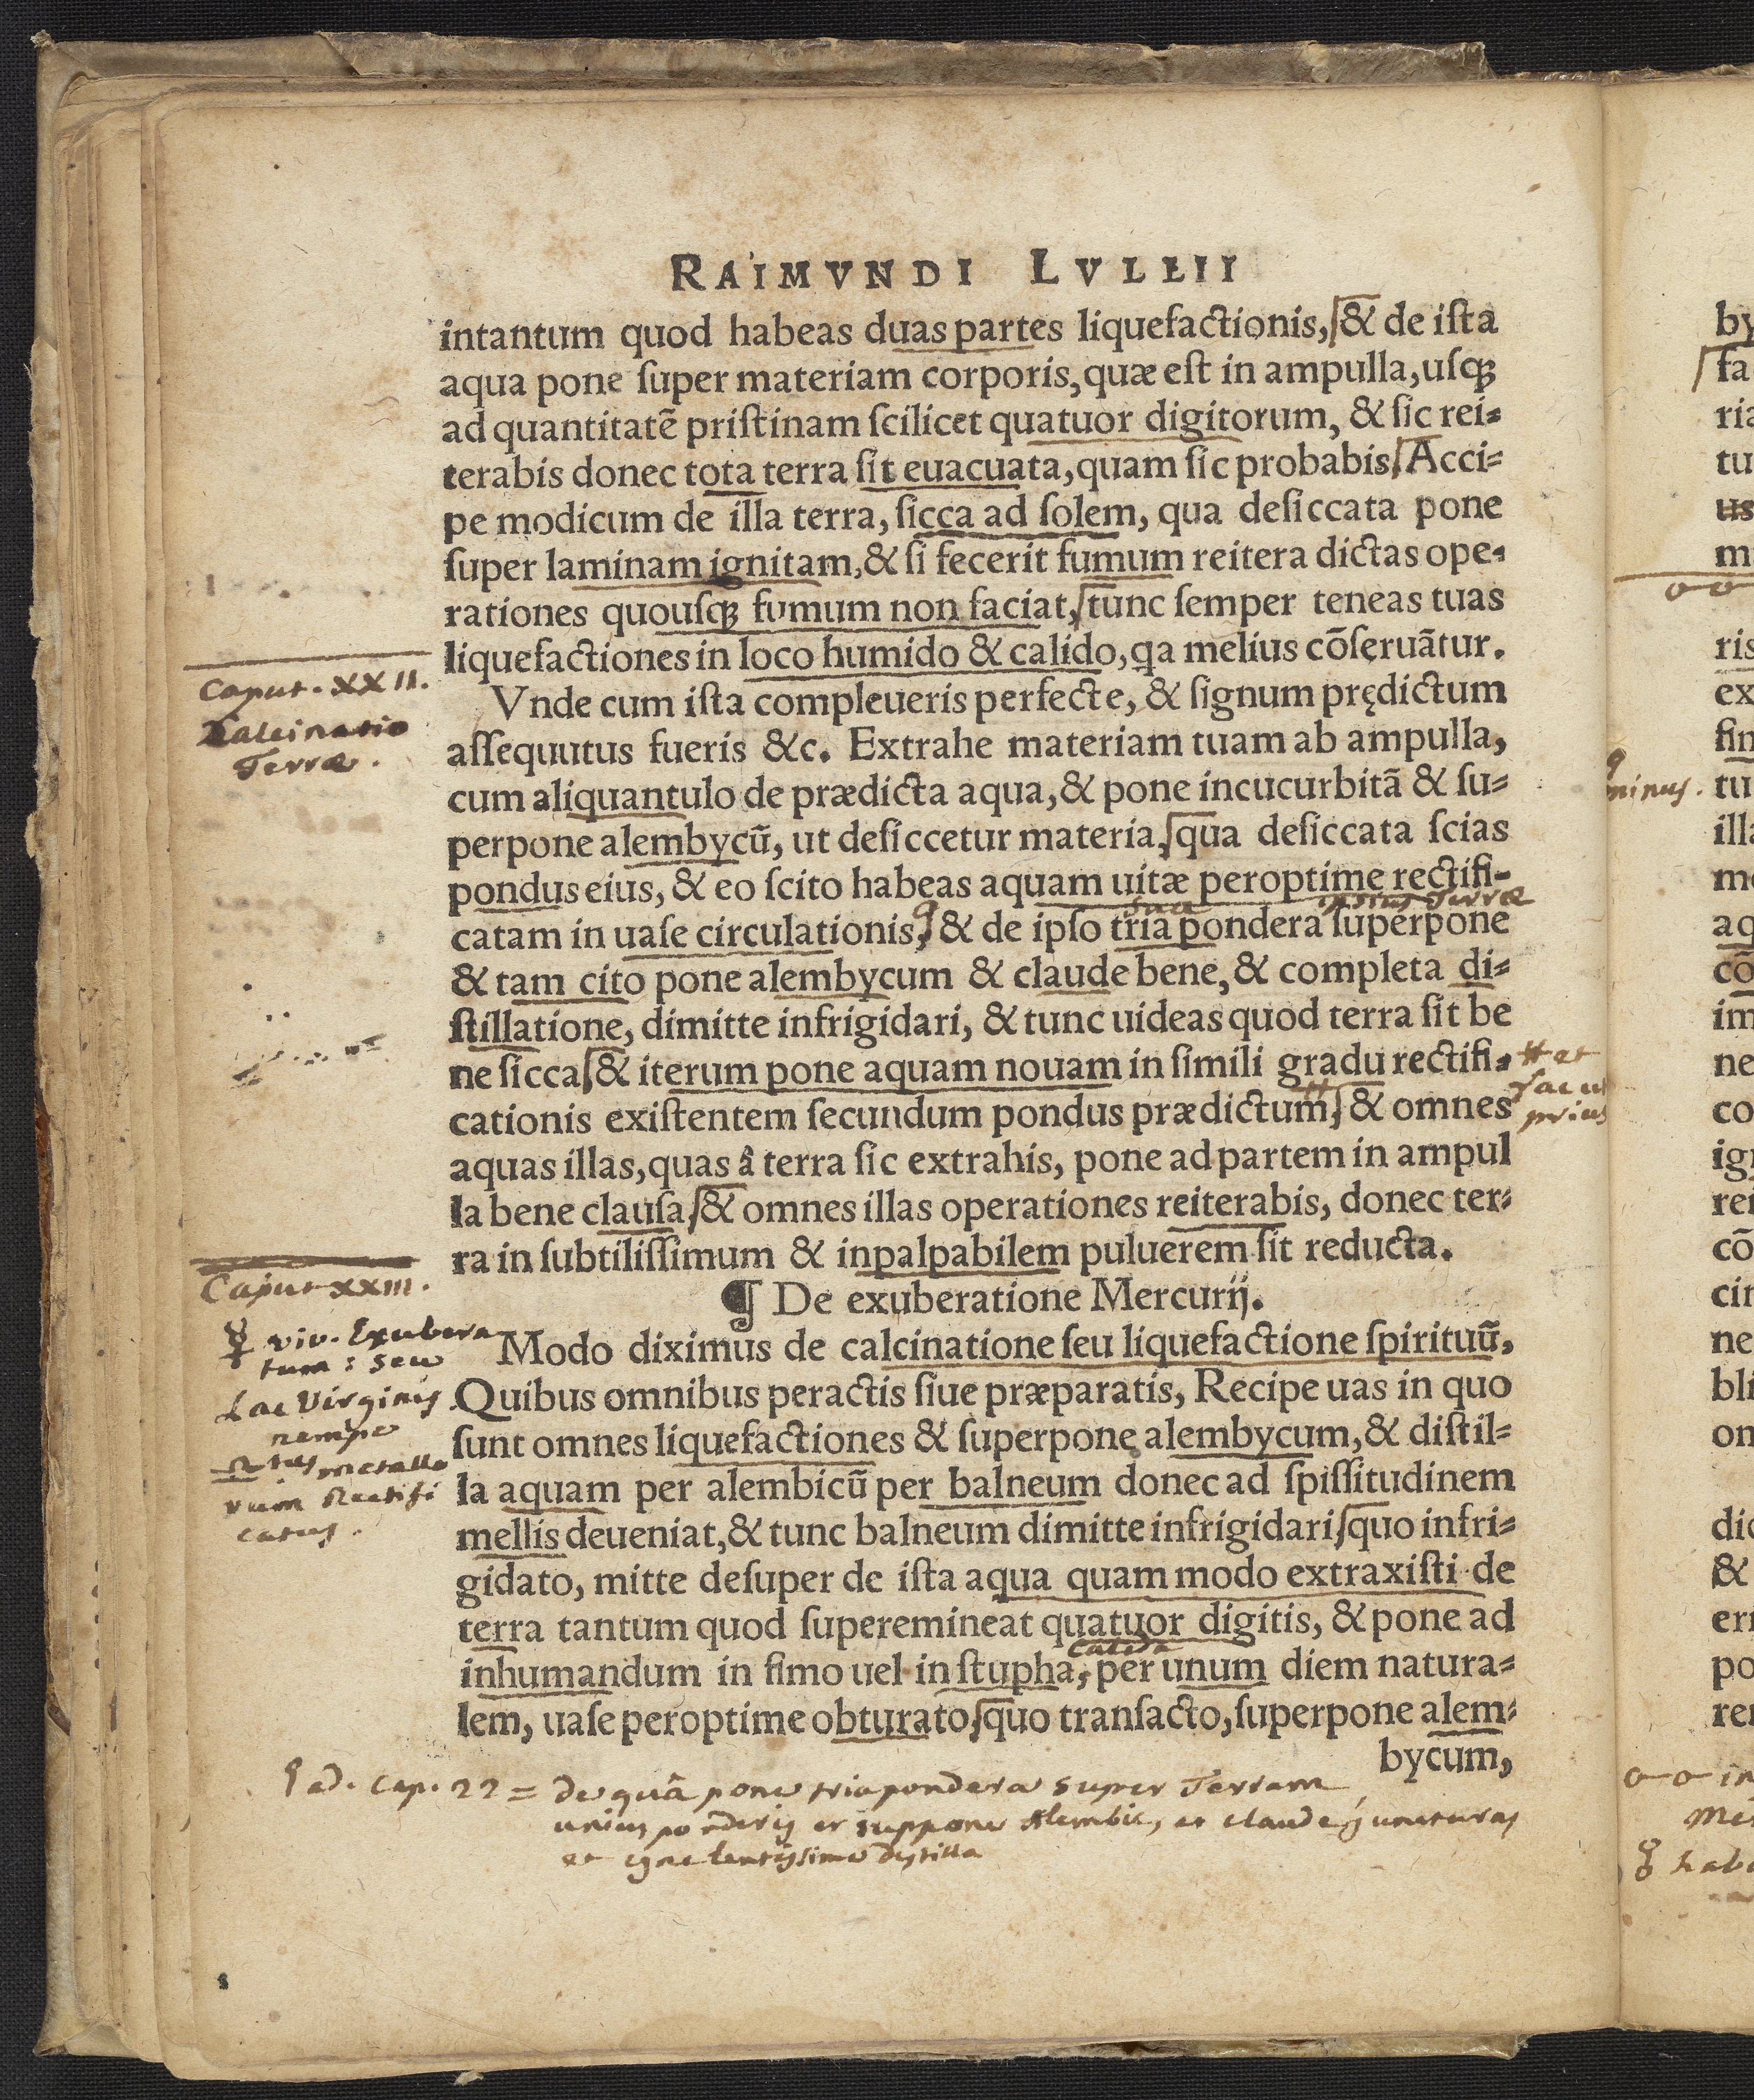 RAIMVNDI LVLLII
intantum quod habeas duas partes liquefactionis, & de iſta
aqua pone ſuper materiam corporis, quæ eſt in ampulla, uſqꝫ
ad quantitatē priſtinam ſcilicet quatuor digitorum, & ſic rei-
terabis donec tota terra ſit euacuata, quam ſic probabis, Acci-
pe modicum de illa terra, ſicca ad ſolem, qua deſiccata pone
ſuper laminam ignitam, & ſi fecerit fumum reitera dictas ope-
rationes quouſqꝫ fumum non faciat, tunc ſemper teneas tuas
liquefactiones in loco humido & calido, qa melius cōſeruātur.
Caput. XXII.
Calcinatio
Terræ.
Vnde cum iſta compleueris perfecte, & ſignum prędictum
aſſequutus fueris &c. Extrahe materiam tuam ab ampulla,
cum aliquantulo de prædicta aqua, & pone incucurbitā & ſu-
perpone alembycū, ut deſiccetur materia, qua deſiccata ſcias
pondus eius, & eo ſcito habeas aquam uitæ peroptime rectifi-
ipsius Terræ
catam in uaſe circulationis, & de ipſo tria pondera ſuperpone
& tam cito pone alembycum & claude bene, & completa di-
ſtillatione, dimitte infrigidari, & tunc uideas quod terra ſit be
ne ſicca, & iterum pone aquam nouam in ſimili gradu rectifi-
# et
fac ut
prius
cationis exiſtentem ſecundum pondus prædictum, & omnes
aquas illas, quas â terra ſic extrahis, pone ad partem in ampul
la bene clauſa, & omnes illas operationes reiterabis, donec ter-
ra in ſubtiliſſimum & inpalpabilem puluerem ſit reducta.
Caput XXIII.
¶ De exuberatione Mercurij.
☿ viv. Exubera
tum: seu
Lac Virginis
nempe
metallo
rum Rectifi
catus.
Modo diximus de calcinatione ſeu liquefactione ſpirituū,
Quibus omnibus peractis ſiue præparatis, Recipe uas in quo
ſunt omnes liquefactiones & ſuperpone alembycum, & diſtil-
la aquam per alembicū per balneum donec ad ſpiſſitudinem
mellis deueniat, & tunc balneum dimitte infrigidari, quo infri-
gidato, mitte deſuper de iſta aqua quam modo extraxiſti de
terra tantum quod ſuperemineat quatuor digitis, & pone ad
calida
inhumandum in fimo uel in ſtupha, per unum diem natura-
lem, uaſe peroptime obturato, quo tranſacto, ſuperpone alem-
bycum,
ad. cap. 22 = de quâ pone tria pondera super Terram
unius ponderis et suppone Alembic, et claude juncturas
et igne lentissimo distilla
by
fa
ria
tu
us
m
ris
ex
fin
minus.
tu
illa
me
aq
cō
im
ne
co
ign
rei
cō
cir
ne
bli
om
dic
&
err
po
rer
in
Mer